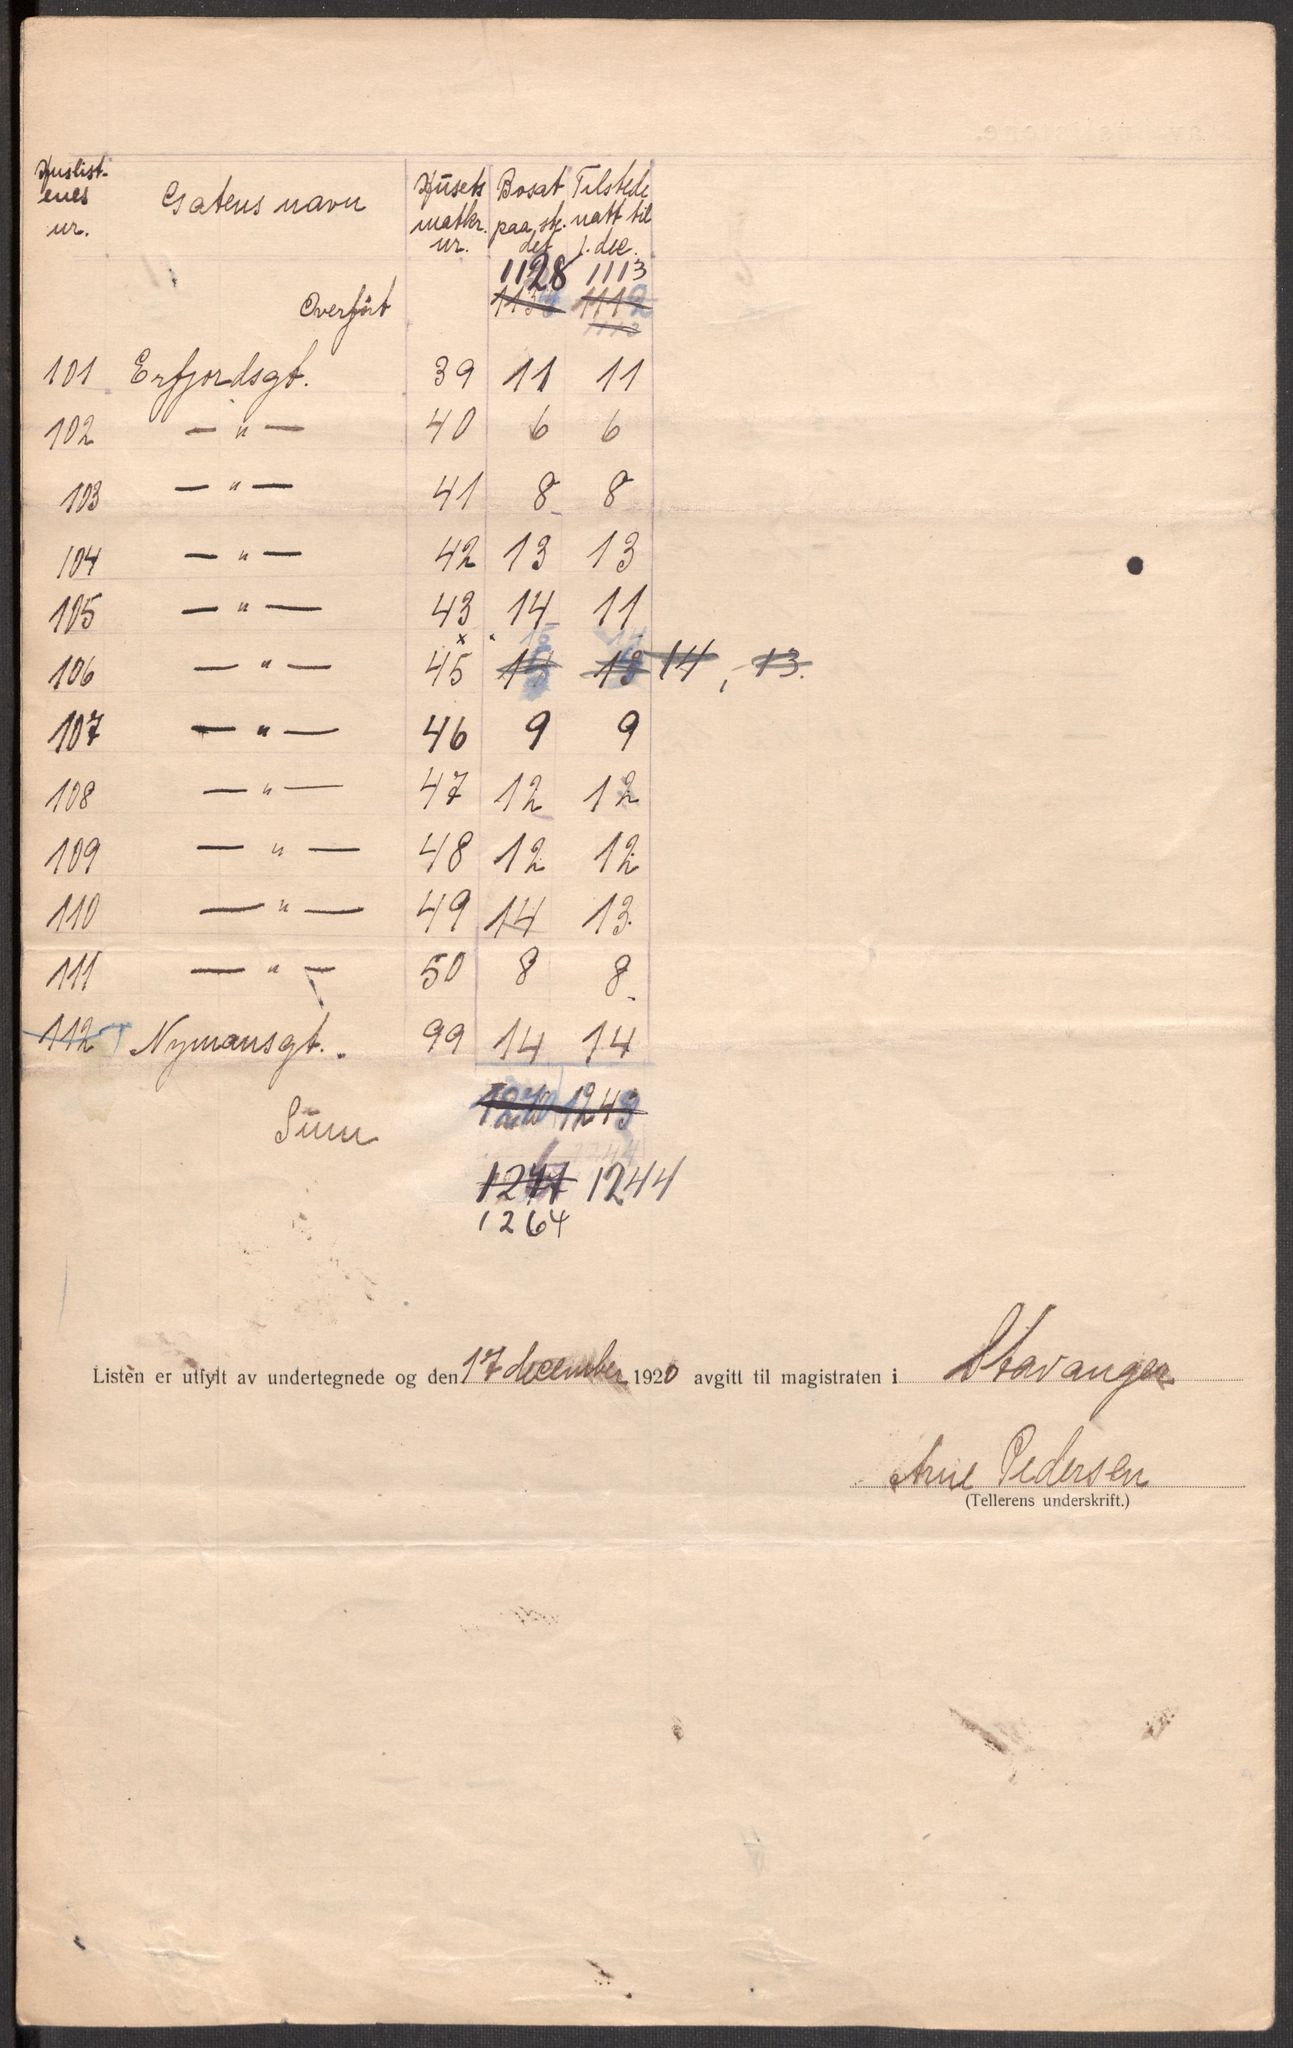 Huslist- Gatens navn Husets Bosat Tilstede
enes matkr. paa ste- natt til
nr. nr. det 1. dec.
1128 1113
Overført 1112
1113
101 Erfjordsgt. 39 11 11
102 — " — 40 6 6
103 — " — 41 8 8
104 — " — 42 13 13
105 — " — 43 14 11
15 14
106 — " — 45 14 13 14, 13.
107 — " — 46 9 9
108 — " — 47 12 12
109 — " — 48 12 12
110 — " — 49 14 13
111 — " — 50 8 8
112 Nymansgt. 99 14 14
Sum 1270 1243
1271 1244
1264
Listen er utfylt av undertegnede og den 17 december 1920 avgitt til magistraten i Stavanger
Arne Pedersen
(Tellerens underskrift.)